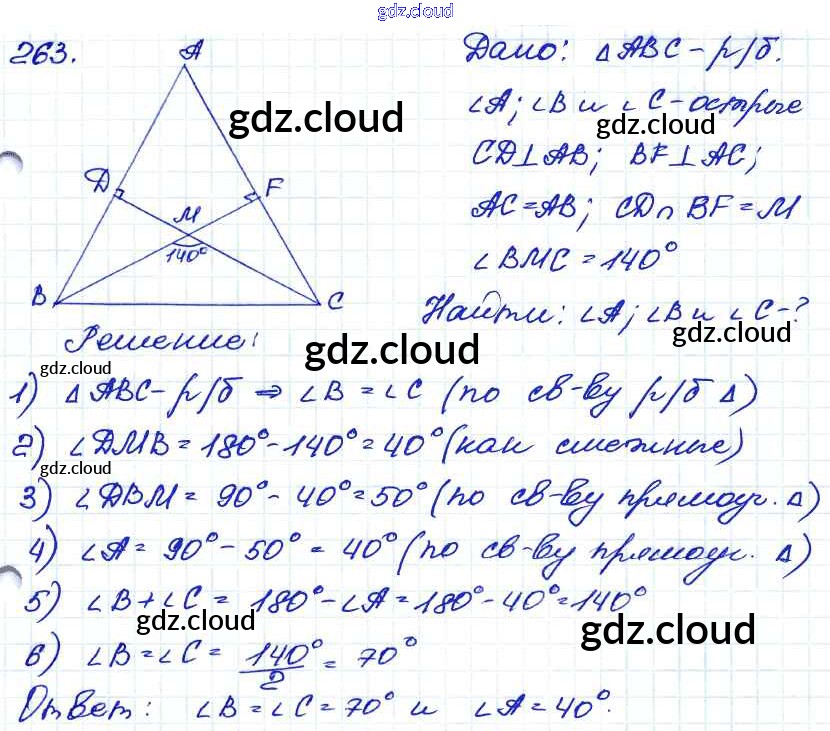 gdz.cloud
263.
Дано: △ABC – р/б.
∠A; ∠B и ∠C – острые
CD⊥AB; BF⊥AC;
AC=AB; CD∩BF=M
∠BMC=140°
Найти: ∠A; ∠B и ∠C-?
A
D
F
M
140°
B
C
gdz.cloud
gdz.cloud
gdz.cloud
Решение:
gdz.cloud
gdz.cloud
1) △ABC – р/б ⇒ ∠B = ∠C (по св-ву р/б △)
2) ∠DMB = 180°-140°=40° (как смежные)
gdz.cloud
3) ∠DBM = 90°- 40°=50° (по св-ву прямоуг. △)
4) ∠A = 90°-50° = 40° (по св-ву прямоуг. △)
5) ∠B+∠C = 180°-∠A=180°-40°=140°
gdz.cloud
gdz.cloud
6) ∠B=∠C= 140°/2 = 70°
Ответ: ∠B=∠C=70° и ∠A=40°.